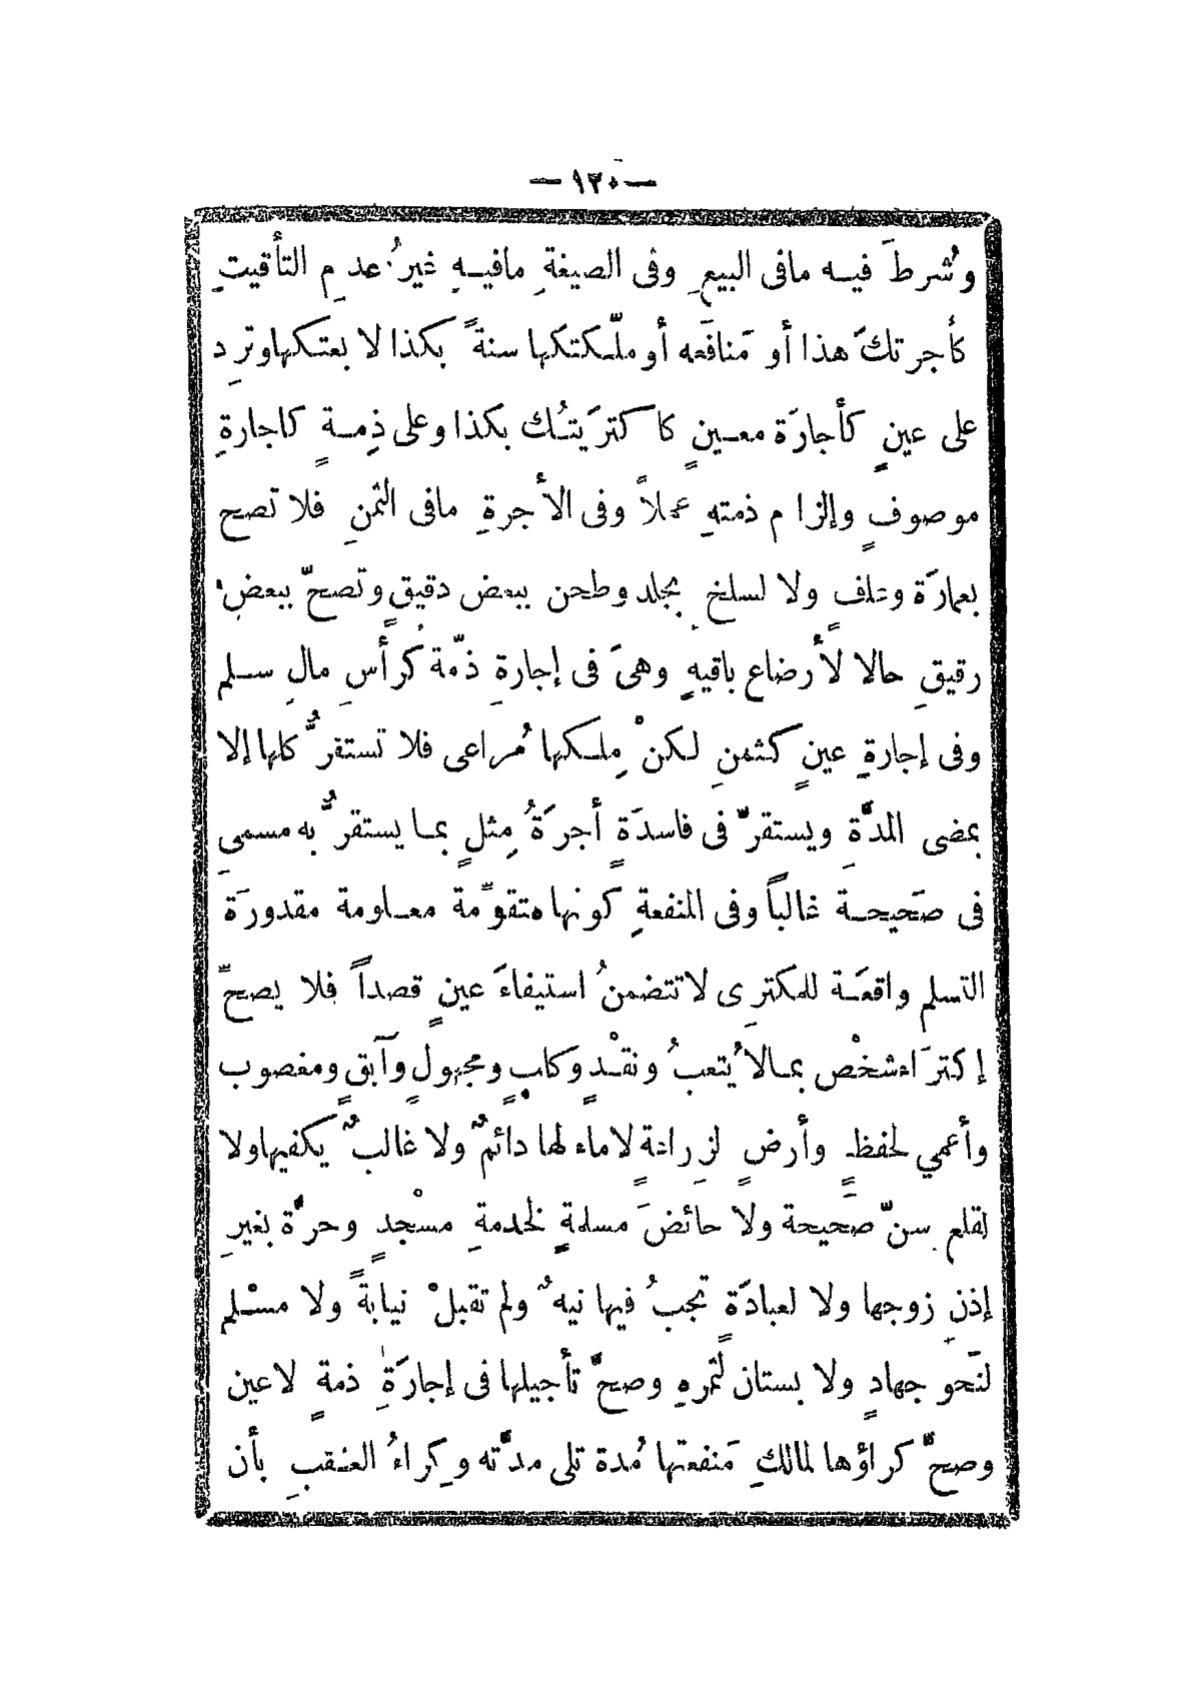 — ١٢٠ —
وشُرطَ فيه مافى البيعِ وفى الصيغةِ مافيهِ غيرُ عدمِ التأقيتِ
كأُجرتكَ هذا أو مَنافَعه أو ملّكتكها سنةً بكذا لا بعتكها وترِد
على عينٍ كأجارَة معينٍ كاكتريَتُك بكذا وعلى ذِمةٍ كاجارةِ
موصوفٍ وإلزام ذمتهِ عملاً وفى الأجرةِ مافى الثمنِ فلا تصح
بعمارَة وعلفٍ ولا لسلخٍ بجلد وطحن ببعض دقيقٍ وتصحّ ببعضِ
رقيقٍ حالا لأرضاع باقيهِ وهىَ فى إجارةِ ذمّة كُرأسِ مالِ سلم
وفى إجارةِ عينٍ كثمنِ لكنْ مِلكها مُراعى فلا تستقرُّ كلها إلا
بمضى المدَّةِ ويستقرّ فى فاسدَةٍ أجرَةُ مِثلٍ بما يستقرُّ به مسمىِ
فى صَحيحة غالباً وفى المنفعةِ كونها متقوّمة معلومة مقدورَة
التسلم واقعَة للمكترِى لاتتضمنُ استيفاءَ عينٍ قصداً فلا يصحّ
إكترَاءشخْص بمالايُتعبُ ونقْدٍ وكلبٍ ومجهولٍ وآبقٍ ومغصوب
وأعمي لحفظٍ وأرضٍ لزِراعةٍ لاماء لها دائمٌ ولا غالبٌ يكفيها ولا
لقلع سنّ صَحيحة ولا حائضَ مسلمةٍ لخدمةِ مسْجدٍ وحرَّة بغيرِ
إذنِ زوجها ولا لعبادَةٍ تجبُ فيها نيةٌ ولم تقبلْ نيابةً ولا مسْلم
لنَحو جهادٍ ولا بستان لثمرهِ وصحَّ تأجيلها فى إجارَةِ ذمةٍ لاعين
وصحَّ كراؤها لمالكِ مَنفعتها مُدة تلى مدَّته وكِراءُ العقبِ بأن